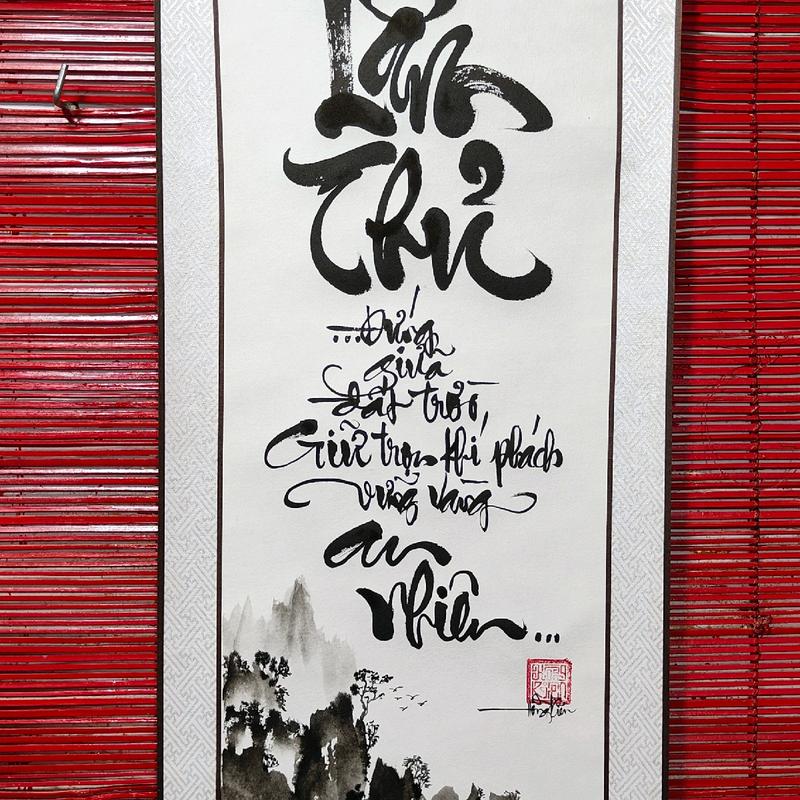 Thủ
...Đứng
giữa
đất trời,
Giữ trọn khí phách
vững vàng
an
nhiên...